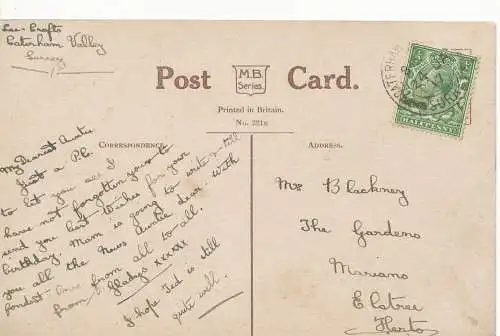 Lea-Crofts
Caterham Valley
Surrey
Post Card.
M.B.
Series.
Printed in Britain.
No. 221
CORRESPONDENCE.
ADDRESS.
CATERHAM
HALFPENNY
My Dearest Auntie
Just a P.C.
to let you see I
have not forgotten you & to
send you best wishes for your
birthday. Mam is going to write & tell
you all the News Auntie dear. With
fondest love from all to all.
from Gladys xxxxxx
I hope Ted is still
quite well.
Mrs Blackney
The Gardens
Mariano
Elstree
Herts